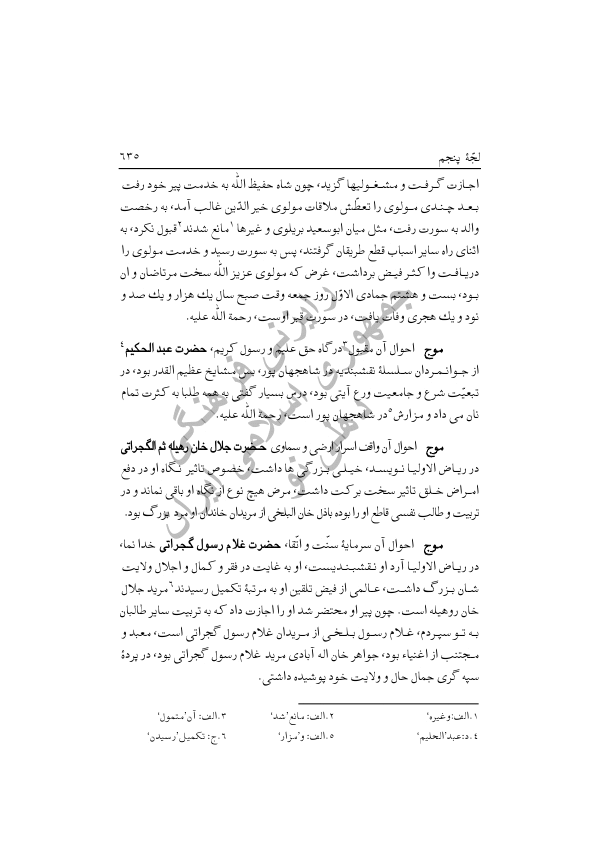 لجّۀ پنجم ٦٣٥
اجازت گرفت و مشغولیها گزید، چون شاه حفیظ الله به خدمت پیر خود رفت
بعد چندی مولوی را تعطّش ملاقات مولوی خیر الدّین غالب آمد، به رخصت
والد به سورت رفت، مثل میان ابوسعید بریلوی و غیرها ١مانع شدند ٢قبول نکرد، به
اثنای راه سایر اسباب قطع طریقان گرفتند، پس به سورت رسید و خدمت مولوی را
دریافت و اکثر فیض برداشت، غرض که مولوی عزیز الله سخت مرتاضان و ان
بود، بست و هشتم جمادی الاوّل روز جمعه وقت صبح سال یك هزار و یك صد و
نود و یك هجری وفات یافت، در سورت قبر اوست، رحمة الله علیه.
موج احوال آن مقبول ٣درگاه حق علیم و رسول کریم، حضرت عبد الحکیم ٤
از جوانمردان سلسلۀ نقشبندیه در شاهجهان پور، بس مشایخ عظیم القدر بود، در
تبعیّت شرع و جامعیت ورع آیتی بود، درس بسیار گفتی به همه طلبا به کثرت تمام
نان می داد و مزارش ٥در شاهجهان پور است، رحمة الله علیه.
موج احوال آن واقف اسرار ارضی و سماوی حضرت جلال خان رهیله ثم الگجراتی
در ریاض الاولیا نویسد، خیلی بزرگی ها داشت، خصوص تاثیر نگاه او در دفع
امراض خلق تاثیر سخت برکت داشت، مرض هیچ نوع از نگاه او باقی نماند و در
تربیت و طالب نفسی قاطع او را بوده باذل خان البلخی از مریدان خاندان او مرد بزرگ بود.
موج احوال آن سرمایۀ سنّت و اتّقا، حضرت غلام رسول گجراتی خدا نما،
در ریاض الاولیا آرد او نقشبندیست، او به غایت در فقر و کمال و اجلال ولایت
شان بزرگ داشت، عالمی از فیض تلقین او به مرتبۀ تکمیل رسیدند ٦مرید جلال
خان روهیله است. چون پیر او محتضر شد او را اجازت داد که به تربیت سایر طالبان
به تو سپردم، غلام رسول بلخی از مریدان غلام رسول گجراتی است، معبد و
مجتنب از اغنیاء بود، جواهر خان اله آبادی مرید غلام رسول گجراتی بود، در پردۀ
سپه گری جمال حال و ولایت خود پوشیده داشتی.
١.الف:وغیره‘ ٢.الف: مانع’شد‘ ٣.الف: آن’متمول‘
٤.د:عبد’الحلیم‘ ٥.الف: و’مزار‘ ٦.ج: تکمیل’رسیدن‘
جمهوری اسلامی ایران
رایزنی فرهنگی
دهلی نو